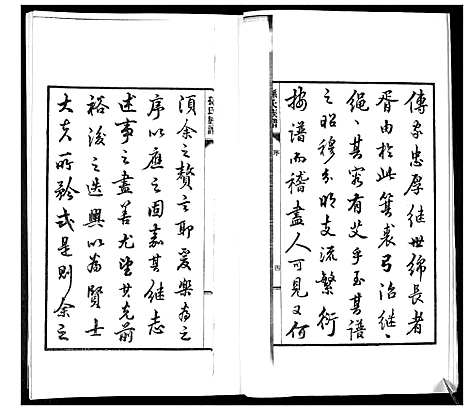 傳家忠厚繼世綿長者
胥由於此箕裘弓冶繼〻
繩〻其容有艾乎至其譜
之昭穆分明支流繁衍
按譜而稽盡人可見又何
孫氏族譜
序
四
須余之贅言耶爰樂為之
序以應之固嘉其繼志
述事之盡善尤望其克前
裕後之迭興以為賢士
大夫所矜式是則余之